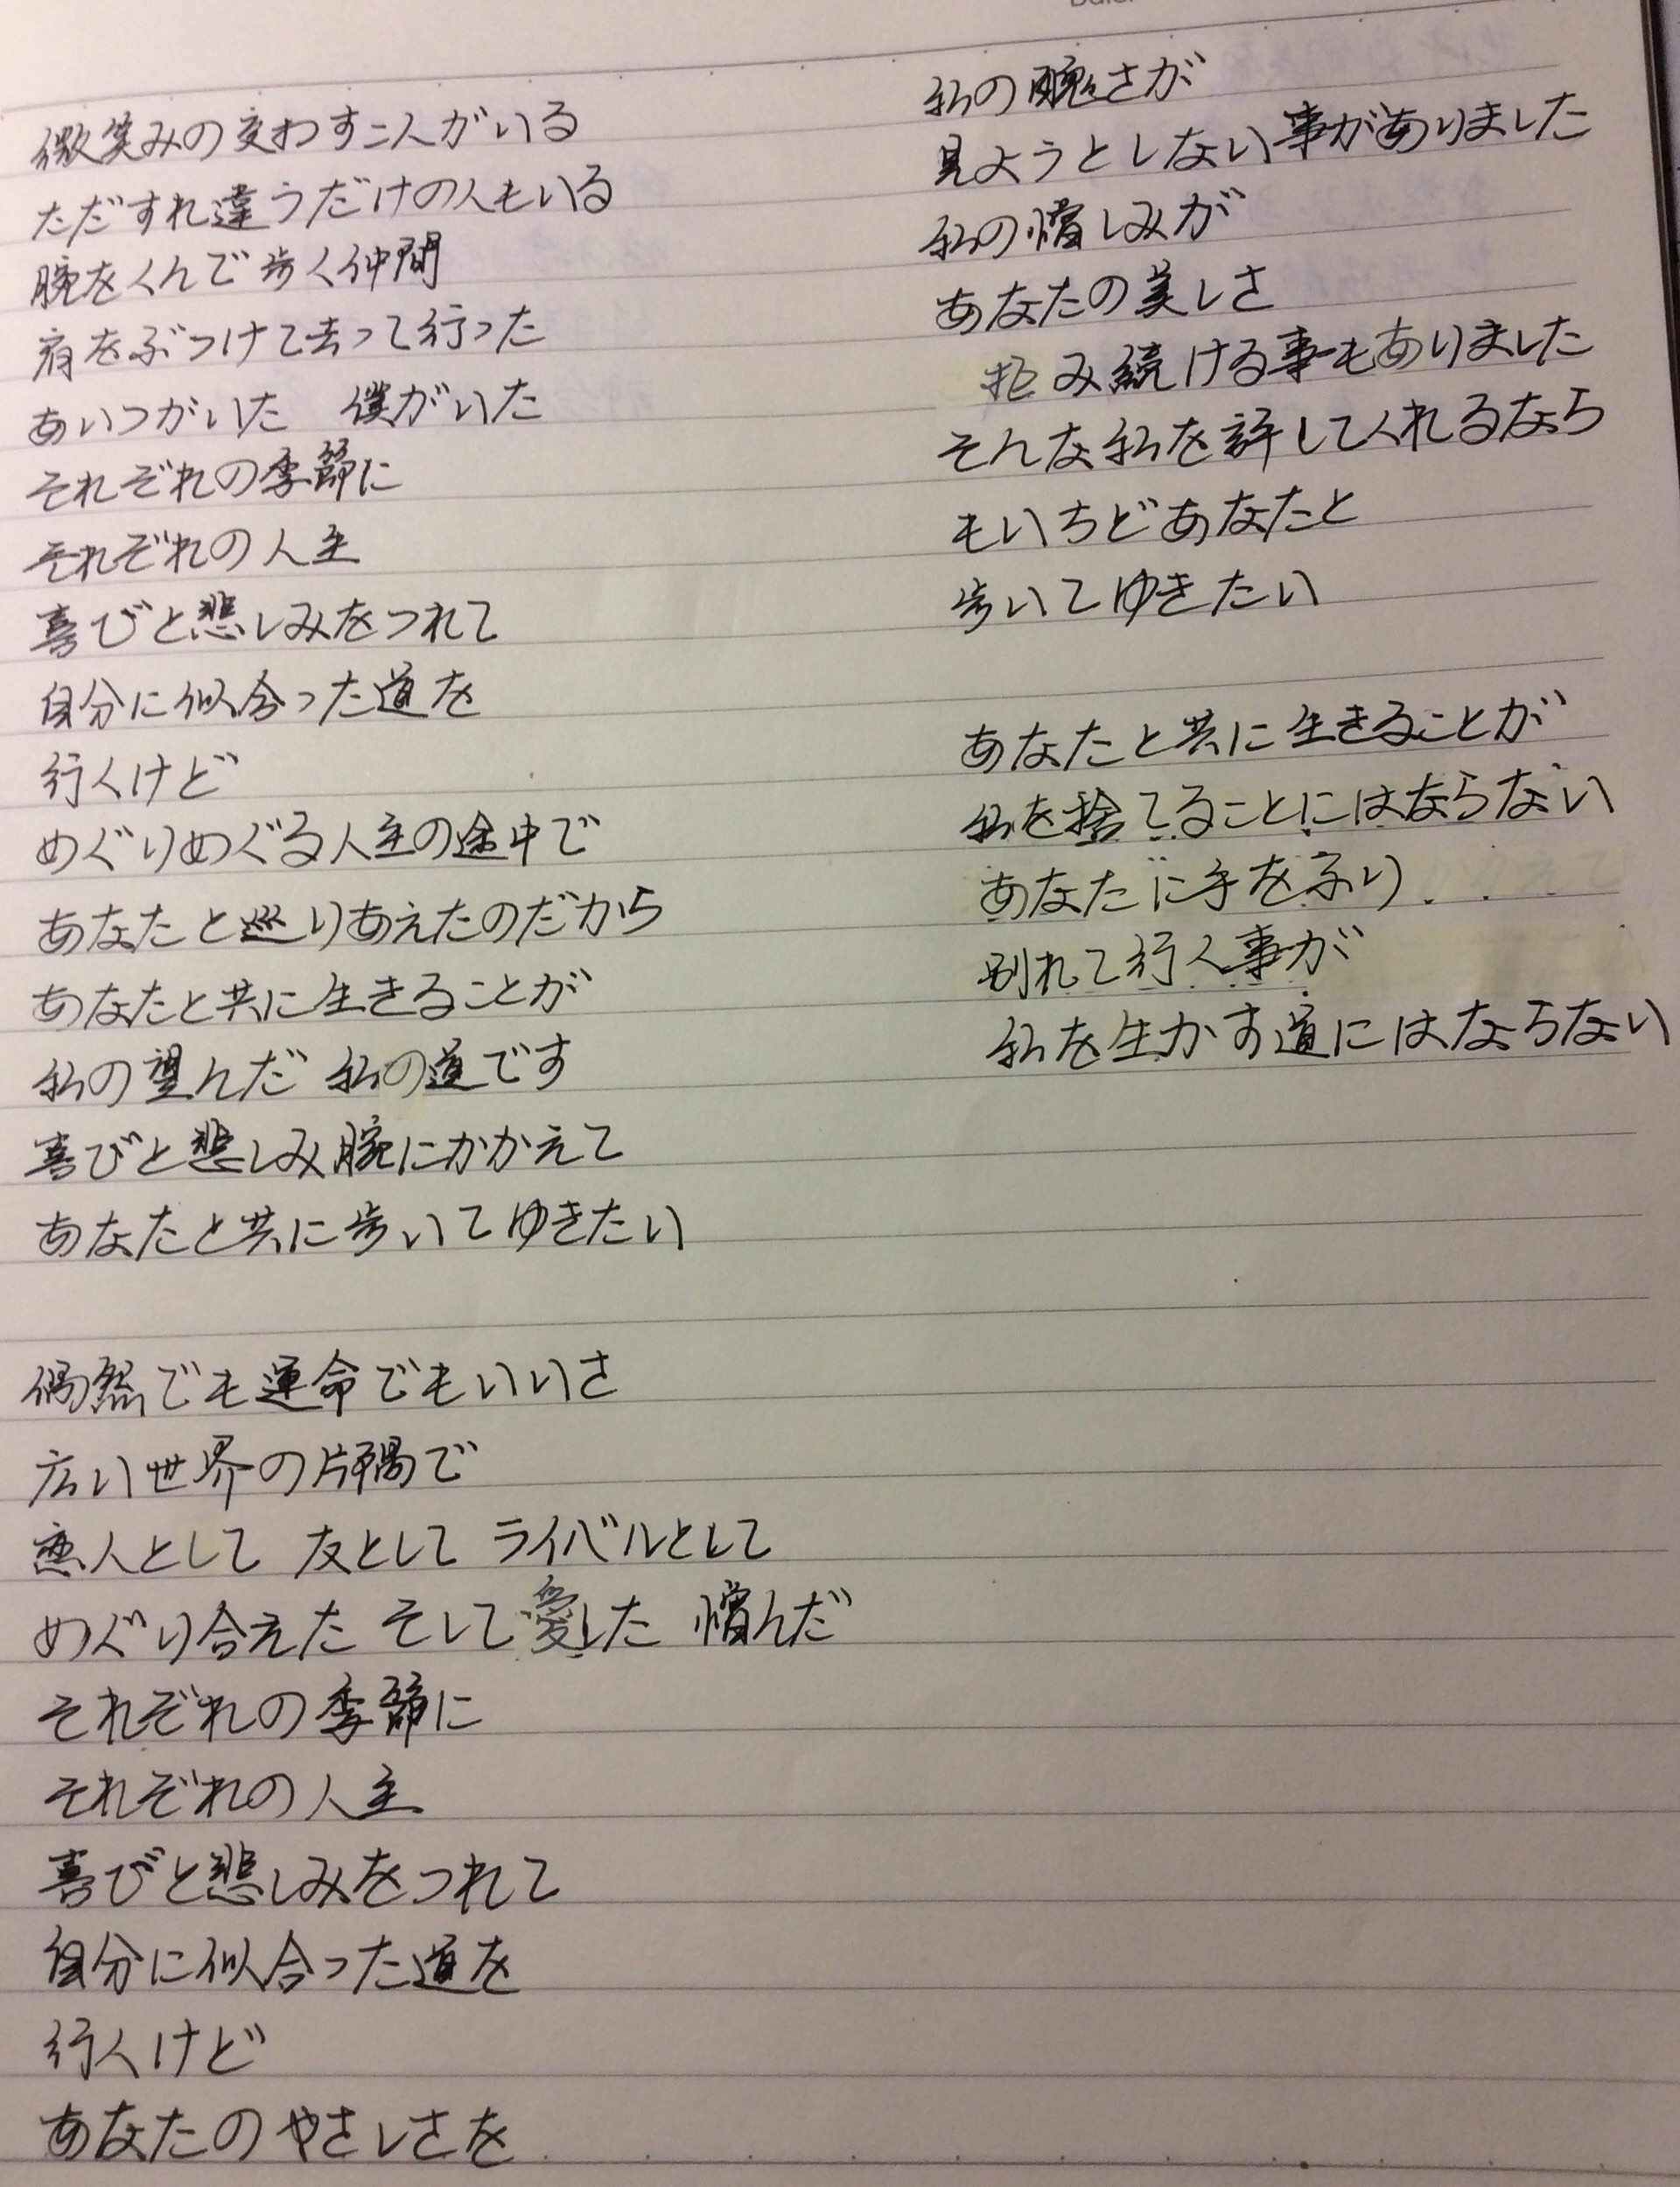 微笑みの交わす二人がいる
ただすれ違うだけの人もいる
腕をくんで歩く仲間
肩をぶつけて去って行った
あいつがいた 僕がいた
それぞれの季節に
それぞれの人生
喜びと悲しみをつれて
自分に似合った道を
行くけど
めぐりめぐる人生の途中で
あなたと巡りあえたのだから
あなたと共に生きることが
私の望んだ 私の道です
喜びと悲しみ腕にかかえて
あなたと共に歩いてゆきたい
偶然でも運命でもいいさ
広い世界の片隅で
恋人として 友として ライバルとして
めぐり合えた そして愛した 憎んだ
それぞれの季節に
それぞれの人生
喜びと悲しみをつれて
自分に似合った道を
行くけど
あなたのやさしさを
私の醜さが
見ようとしない事がありました
私の憎しみが
あなたの美しさ
拒み続ける事もありました
そんな私を許してくれるなら
もいちどあなたと
歩いてゆきたい
あなたと共に生きることが
私を捨てることにはならない
あなたに手をふり
別れて行く事が
私を生かす道にはならない